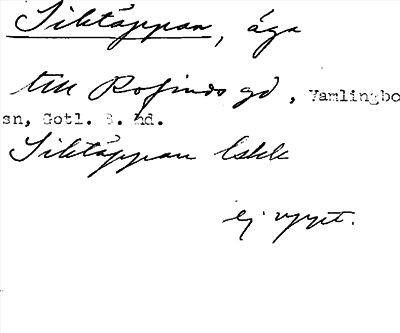 Siktäppan, äga
till Rofinds gd, Vamlingbo
sn, Gotl. S. hd.
Siktäppan Eskk
ej uppt.